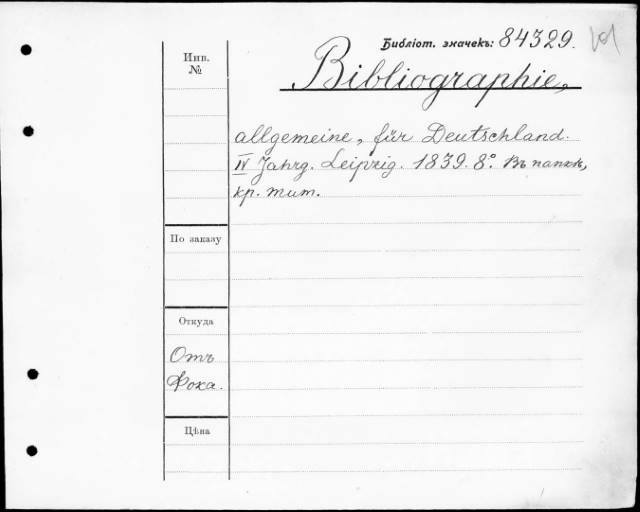 Библіот. значекъ: 84329.
Инв.
№
Bibliographie,
allgemeine, für Deutschland.
IV Jahrg. Leipzig. 1839. 8°. Въ папкѣ,
кр. тит.
По заказу
Откуда
Отъ
Фока.
Цѣна